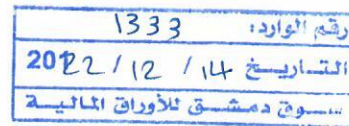 رقم الوارد: 1333
التاريخ 14 / 12 / 2022
سوق دمشق للأوراق المالية